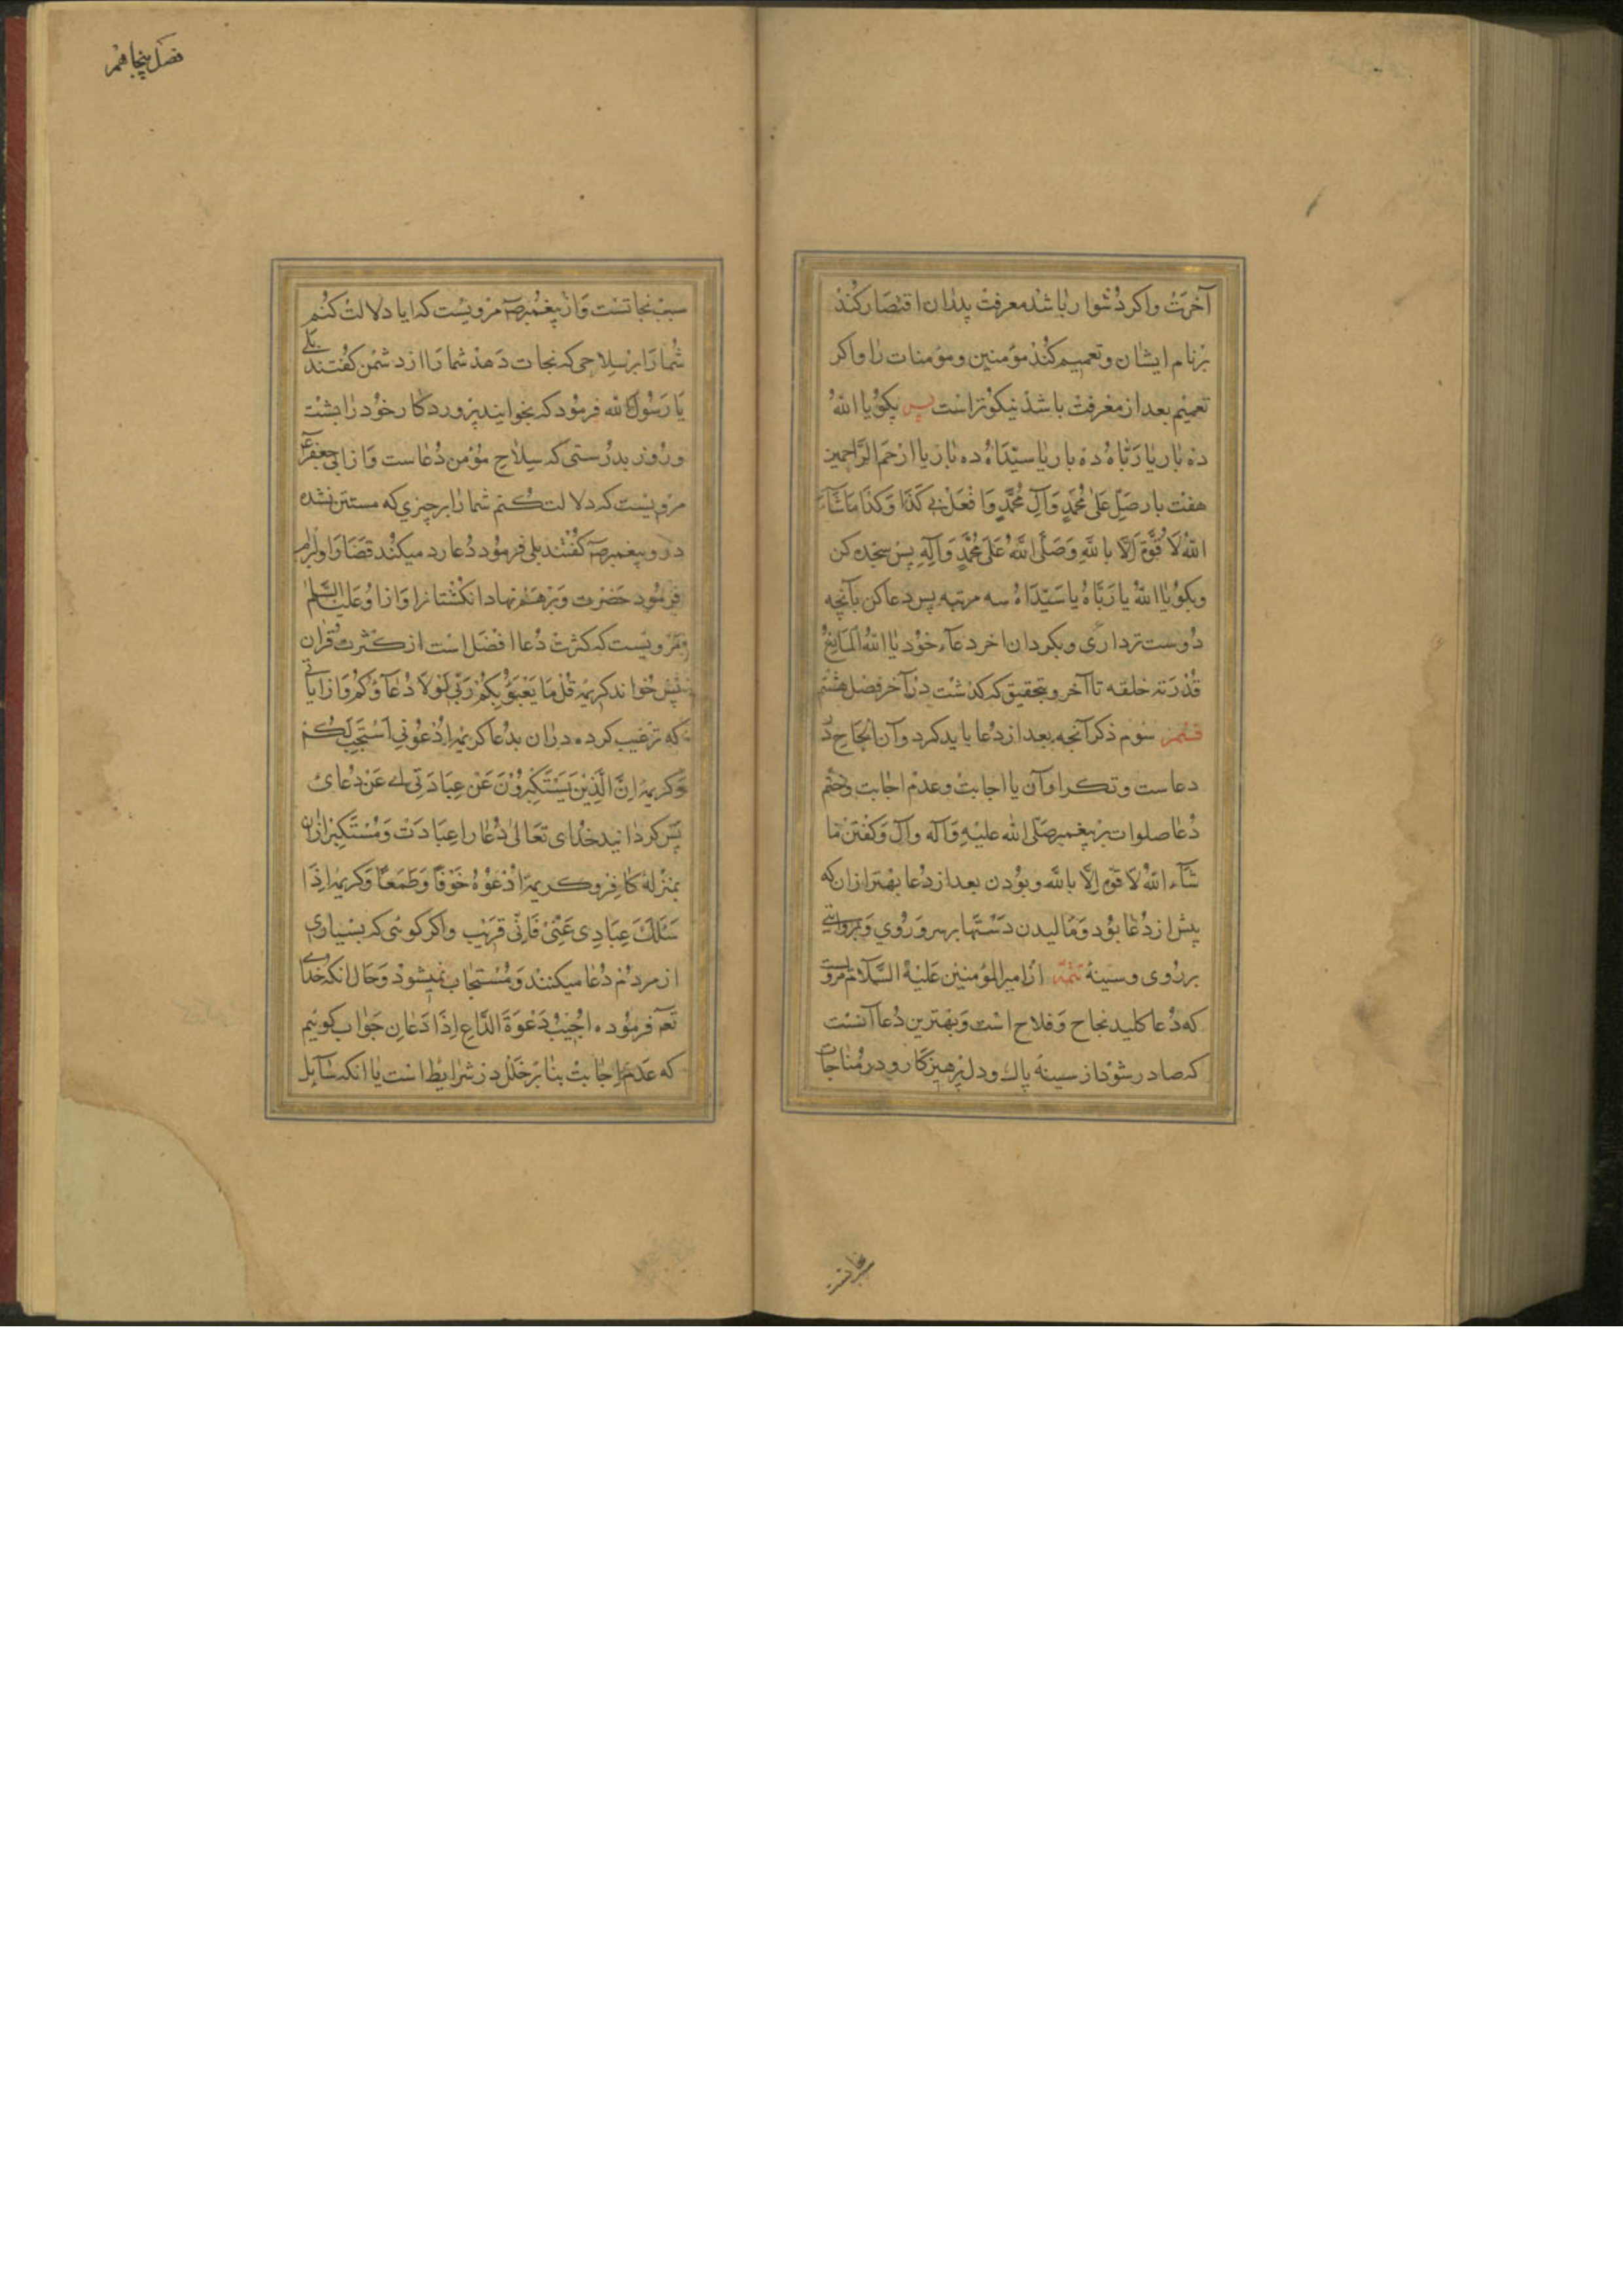 آخرت واکر دشوار باشد معرفت پدران اقتصار کند
بر نام ایشان و تعمیم کند مؤمنین و مؤمنات را واکر
تعمیم بعد از معرفت باشد نیکوتر است پس بکو یا الله
ده بار یا رباه ده بار یا سیداه ده بار یا ارحم الراحمین
هفت بار صل علی محمد وآل محمد وافعل بی کذا وکذا ماشاء
الله لا قوة الا بالله وصلی الله علی محمد وآله پس سجده کن
وبکو یا الله یا رباه یا سیداه سه مرتبه پس دعا کن بآنچه
دوست تر داری و بکردان اخر دعاء خود یا الله المانع
قدرته خلقه تا آخر و بتحقیق که کذشت در آخر فصل هشتم
قسم سوم ذکر آنچه بعد از دعا باید کرد وآن الحاح در
دعاست و تکرار آن با اجابت وعدم اجابت وختم
دعا صلوات بر پیغمبر صلی الله علیه وآله وآل وکفتن ما
شاء الله لا قوة الا بالله و بودن بعد از دعا بهتر ازان که
پیش از دعا بود ومالیدن دستها بر سر و روی وبروایتی
بر روی و سینه تتمه از امیر المؤمنین علیه السلام مرویست
که دعا کلید نجاح وفلاح است وبهترین دعا آنست
که صادر شود از سینه پاک و دل پرهیزکار و در مناجات
سبب نجاتست
فصل پنجاهم
سبب نجاتست واز پیغمبر صـ مرویست که ایا دلالت کنم
شما را بر سلاحی که نجات دهد شما را از دشمن کفتند بلی
یا رسول الله فرمود که بخوانید پروردکار خود را بشب
و روز بدرستی که سلاح مؤمن دعاست واز ابی جعفر ع
مرویست که دلالت کنم شما را بر چیزی که مستثنی نشده
در و پیغمبر صـ کفتند بلی فرمود دعا رد میکند قضا را وابرام
فرمود حضرت وبر هم نهاد انکشتانرا واز او علیه السلم
مرویست که کثرت دعا افضل است از کثرت قران
پس خواند کریمه قل ما یعبؤ بکم ربی لولا دعاؤکم واز ایاتی
که ترغیب کرده دران بدعا کریمه ادعونی استجب لکم
وکریمه ان الذین یستکبرون عن عبادتی ای عن دعائی
پس کردانید خدای تعالی دعا را عبادت ومستکبر ازان
بمنزله کافر و کریمه ادعوه خوفا وطمعا وکریمه اذا
سئلک عبادی عنی فانی قریب واکر کوئی که بسیاری
از مردم دعا میکنند ومستجاب نمیشود وحال انکه خدای
تعـ فرموده اجیب دعوة الداع اذا دعان جواب کوئیم
که عدم اجابت بنا بر خلل در شرایط است یا انکه سایل